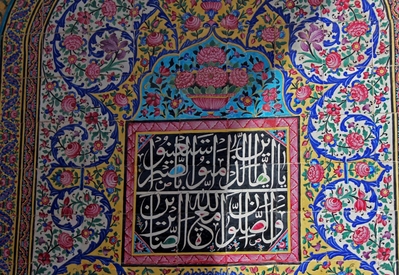 يا ايها الذين امنوا استعينوا بالصبر
والصلوة ان الله مع الصابرين